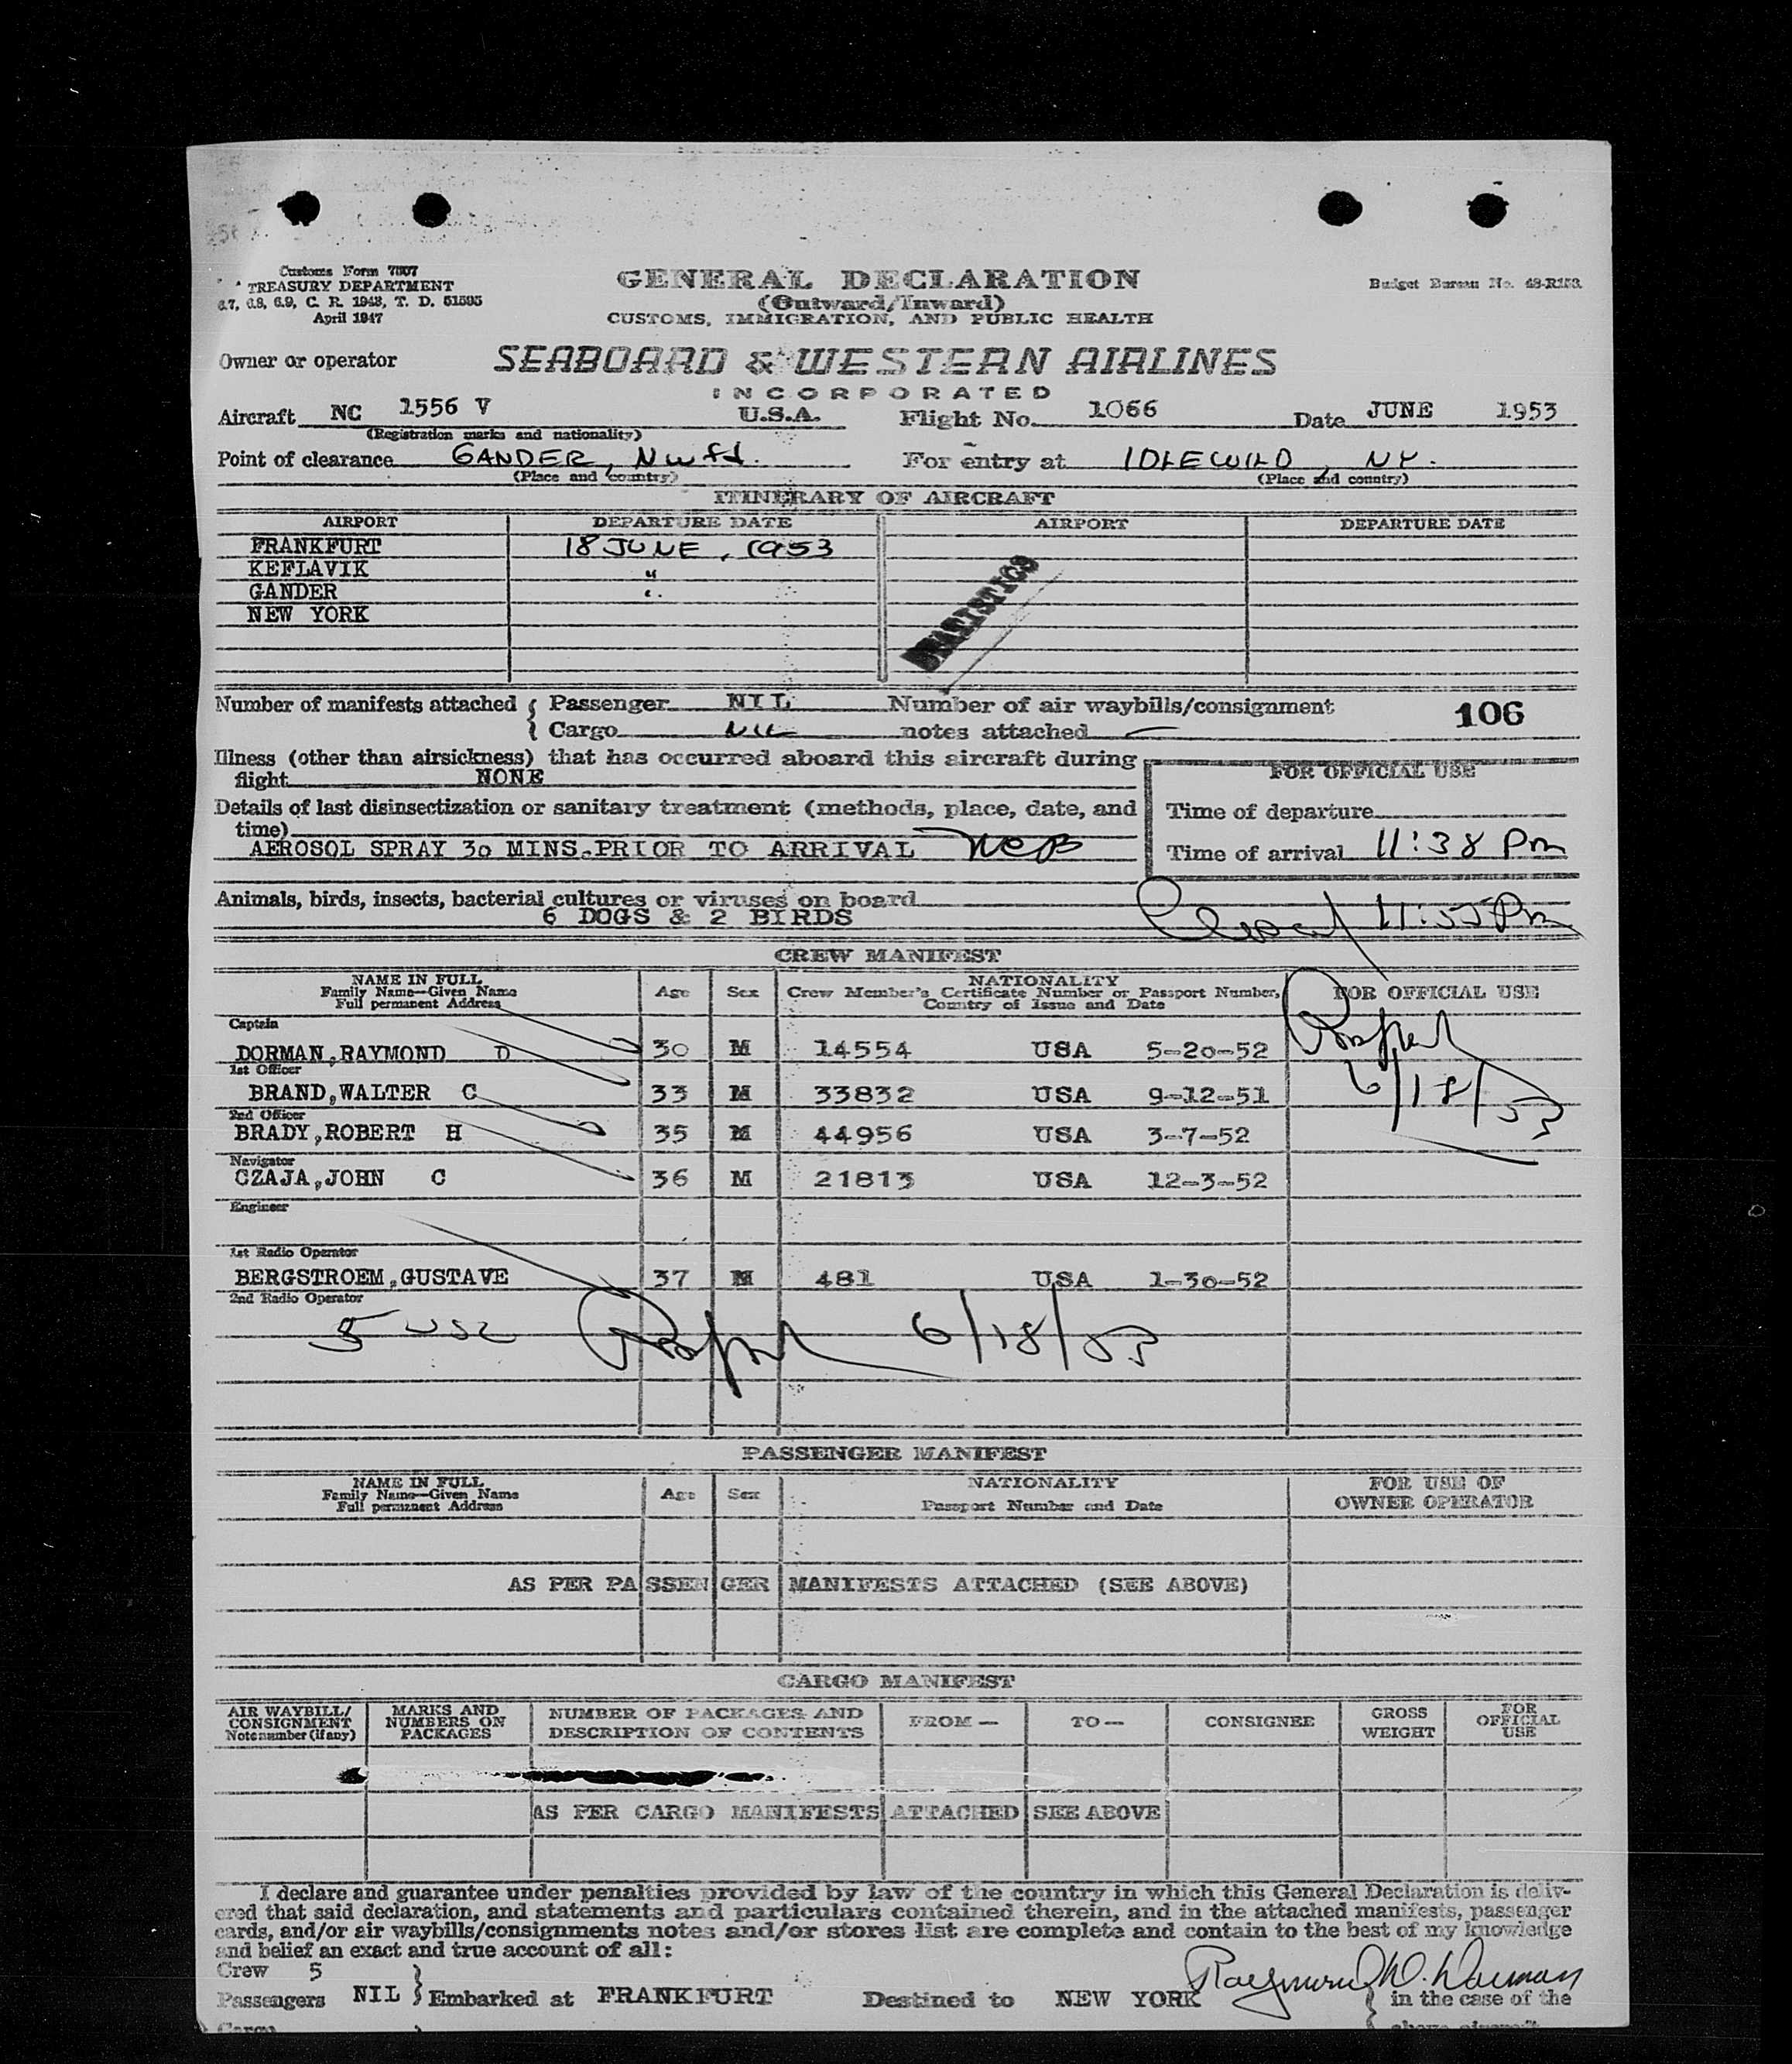 Customs Form 7507
TREASURY DEPARTMENT
6.7, 6.8, 6.9, C. R. 1943, T. D. 51595
April 1947
GENERAL DECLARATION
(Outward/Inward)
CUSTOMS, IMMIGRATION, AND PUBLIC HEALTH
Budget Bureau No. 48-R153.
Owner or operator SEABOARD & WESTERN AIRLINES
INCORPORATED
Aircraft NC 1556 V U.S.A. Flight No. 1066 Date JUNE 1953
(Registration marks and nationality)
Point of clearance GANDER, Nwfd. For entry at IDLEWILD, NY.
(Place and country) (Place and country)
ITINERARY OF AIRCRAFT
AIRPORT DEPARTURE DATE AIRPORT DEPARTURE DATE
FRANKFURT 18 JUNE, 1953
KEFLAVIK "
GANDER "
NEW YORK
STATISTICS
Number of manifests attached { Passenger NIL Number of air waybills/consignment 106
Cargo NIL notes attached —
Illness (other than airsickness) that has occurred aboard this aircraft during
flight NONE
FOR OFFICIAL USE
Details of last disinsectization or sanitary treatment (methods, place, date, and
time)
Time of departure
AEROSOL SPRAY 30 MINS.PRIOR TO ARRIVAL
Time of arrival 11:38 Pm
Animals, birds, insects, bacterial cultures or viruses on board
6 DOGS & 2 BIRDS
11:55 Pm
CREW MANIFEST
NAME IN FULL
Family Name—Given Name
Full permanent Address
Age Sex
NATIONALITY
Crew Member's Certificate Number or Passport Number,
Country of Issue and Date
FOR OFFICIAL USE
Captain
DORMAN,RAYMOND D 30 M 14554 USA 5-20-52
1st Officer
BRAND,WALTER C 33 M 33832 USA 9-12-51
6/18/53
2nd Officer
BRADY,ROBERT H 35 M 44956 USA 3-7-52
Navigator
CZAJA,JOHN C 36 M 21813 USA 12-3-52
Engineer
1st Radio Operator
BERGSTROEM,GUSTAVE 37 M 481 USA 1-30-52
2nd Radio Operator
5 USC 6/18/53
PASSENGER MANIFEST
NAME IN FULL
Family Name—Given Name
Full permanent Address
Age Sex
NATIONALITY
Passport Number and Date
FOR USE OF
OWNER OPERATOR
AS PER PASSENGER MANIFESTS ATTACHED (SEE ABOVE)
CARGO MANIFEST
AIR WAYBILL/
CONSIGNMENT
Note number (if any)
MARKS AND
NUMBERS ON
PACKAGES
NUMBER OF PACKAGES AND
DESCRIPTION OF CONTENTS
FROM—
TO—
CONSIGNEE
GROSS
WEIGHT
FOR
OFFICIAL
USE
AS PER CARGO MANIFESTS ATTACHED SEE ABOVE
I declare and guarantee under penalties provided by law of the country in which this General Declaration is deliv-
ered that said declaration, and statements and particulars contained therein, and in the attached manifests, passenger
cards, and/or air waybills/consignments notes and/or stores list are complete and contain to the best of my knowledge
and belief an exact and true account of all:
Crew 5
Raymond D. Dorman
Passengers NIL } Embarked at FRANKFURT Destined to NEW YORK in the case of the
Cargo above aircraft